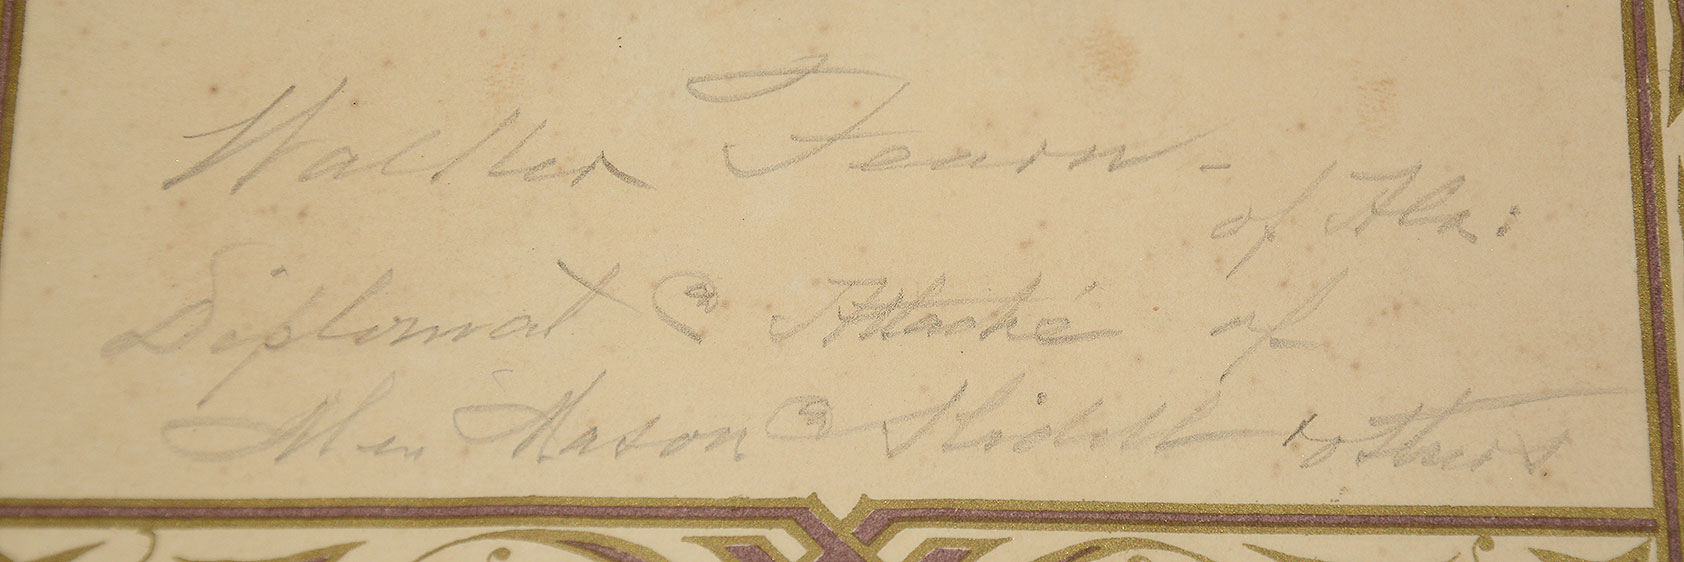 Walker Fearn -
of Ala:
Diplomat & Attaché of
Mason & Slidell & others